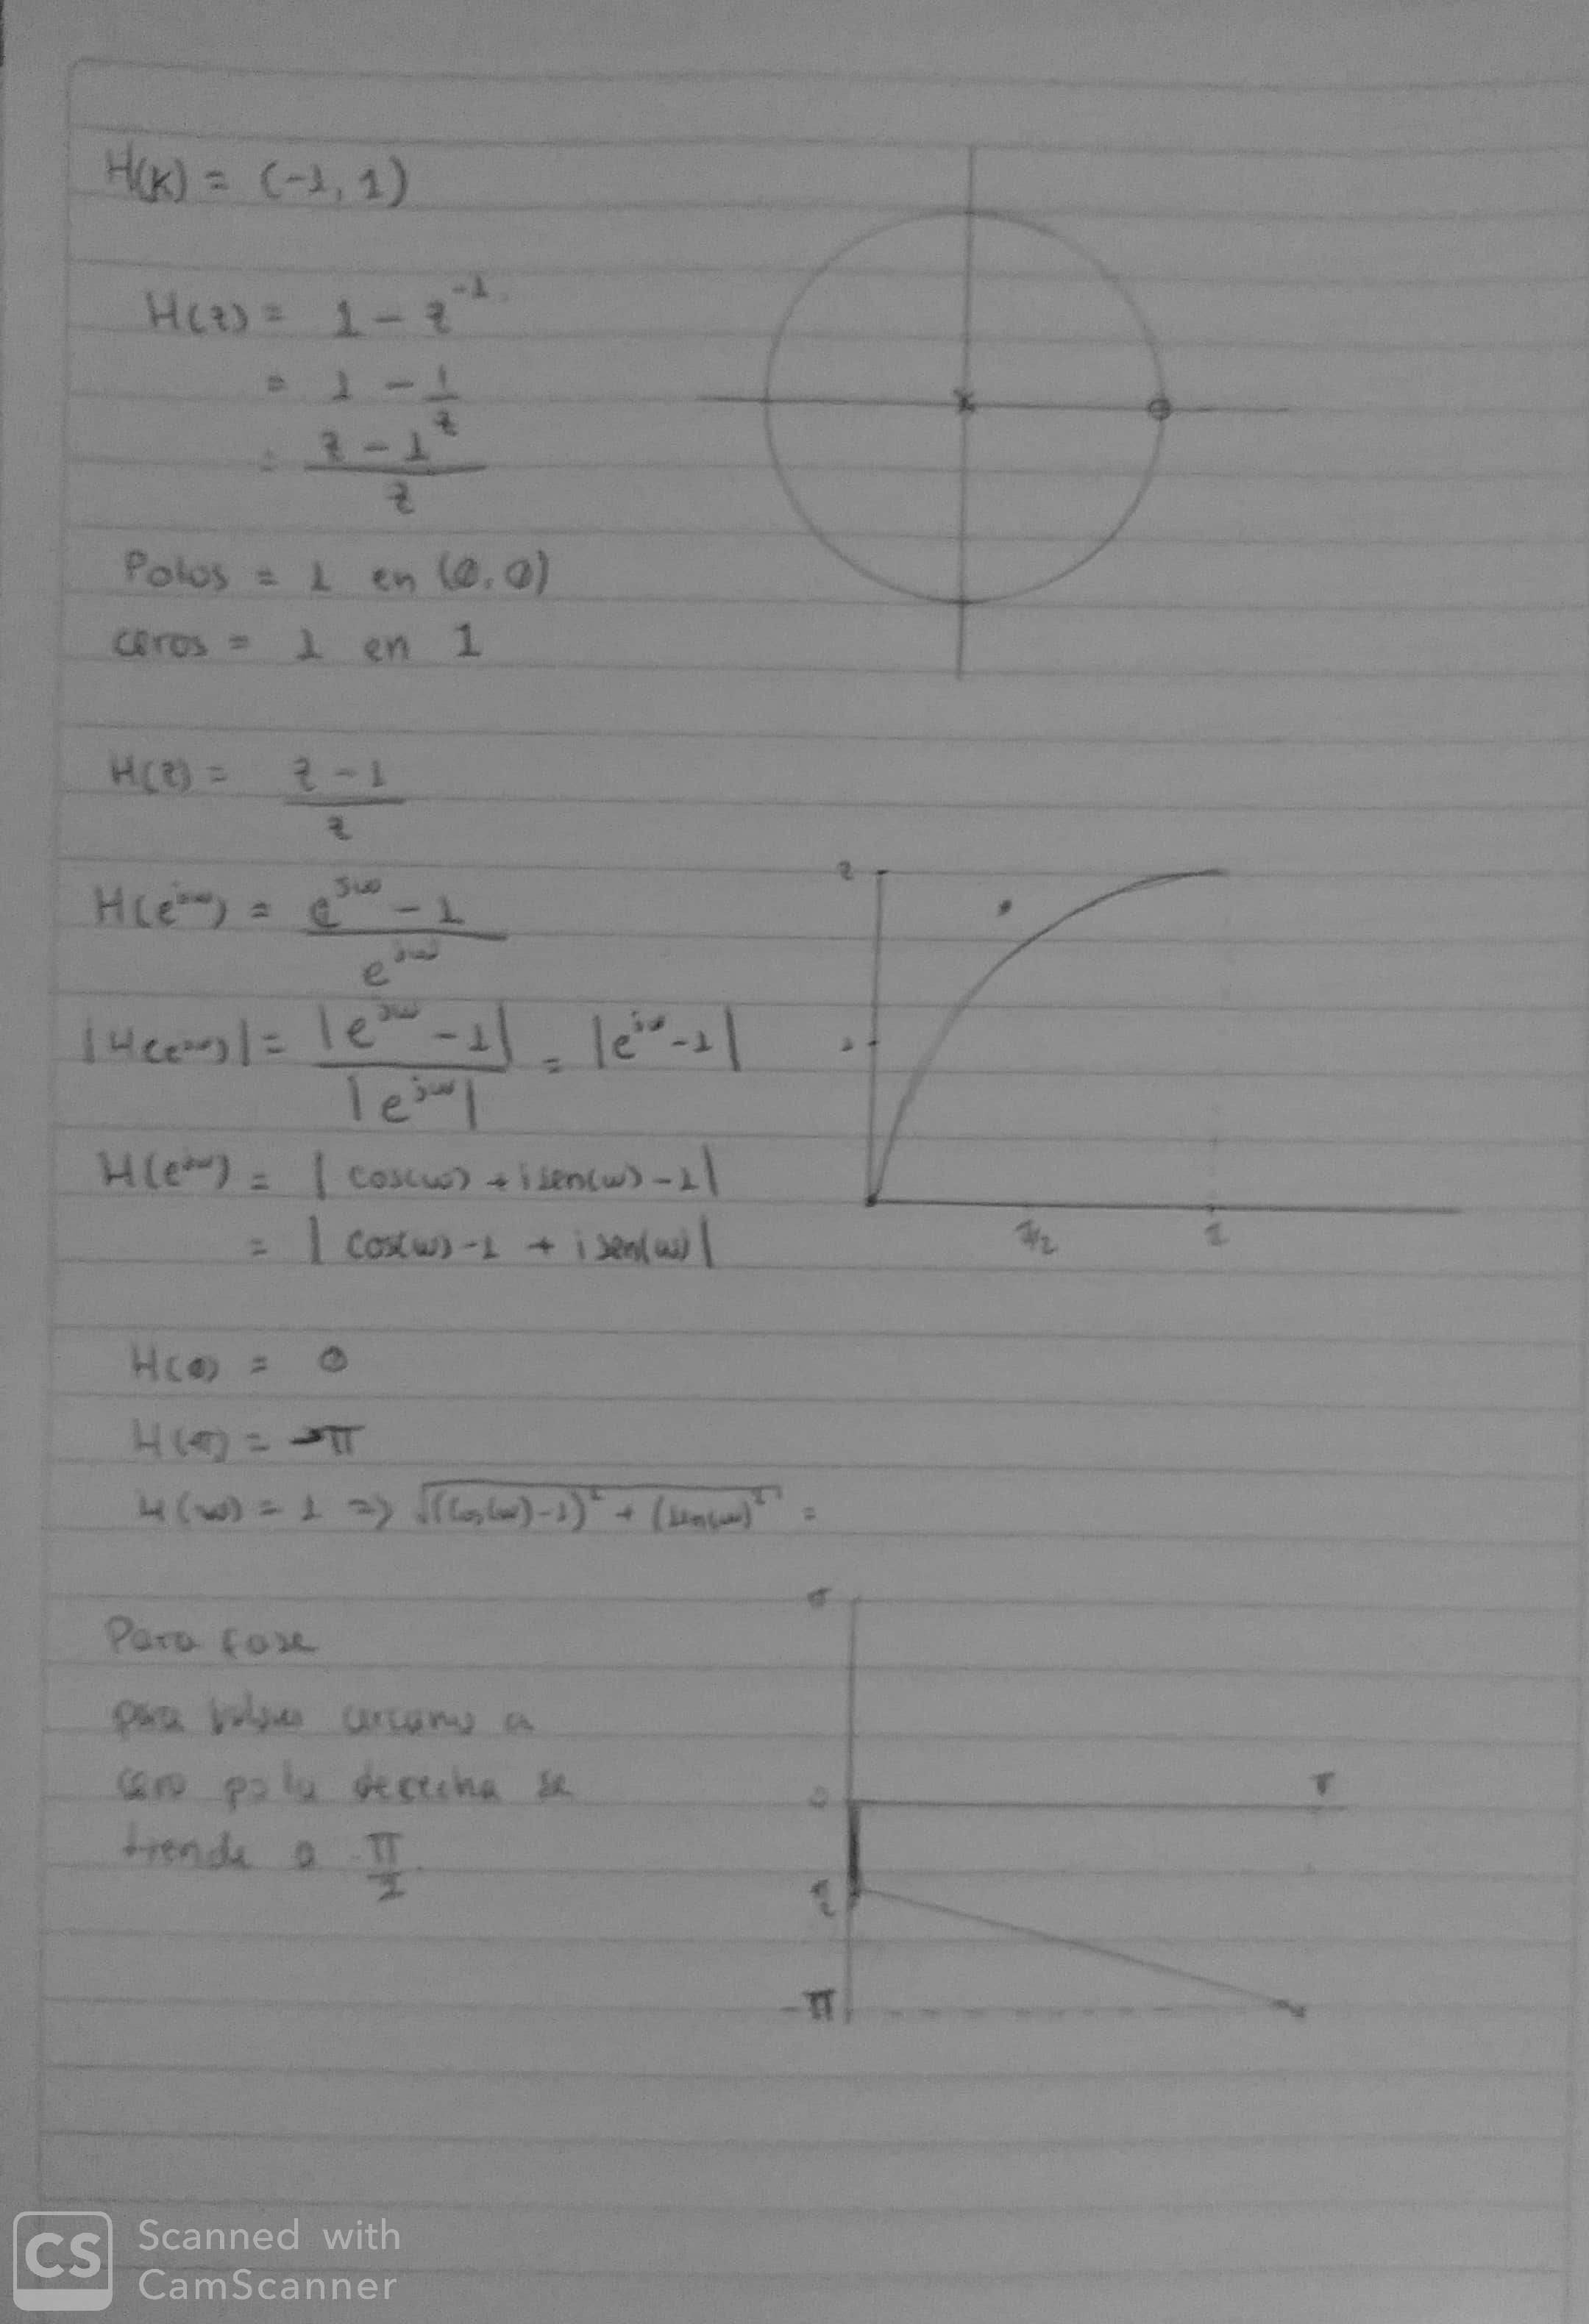 H(k) = (-1, 1)
H(z) = 1 - z^-1
= 1 - 1/z
= (z - 1)/z
Polos = 1 en (0,0)
ceros = 1 en 1
H(z) = (z - 1)/z
H(e^jω) = (e^jω - 1)/e^jω
|H(e^jω)| = |e^jω - 1|/|e^jω| = |e^jω - 1|
H(e^jω) = | cos(ω) + i sen(ω) - 1|
= | cos(ω) - 1 + i sen(ω)|
2
1
π/2
H(0) = 0
H(ω) = 1 => √((cos(ω) - 1)² + (sen(ω))² =
Para fase
para valores cercanos a
cero por la derecha se
tiende a π/2
π
0
π
-π
CS Scanned with
CamScanner